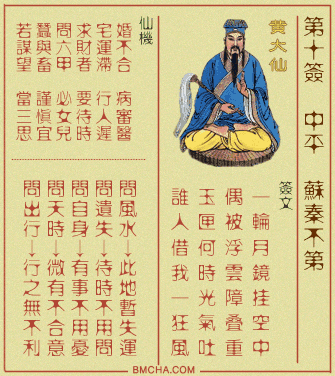 第十簽 中平 蘇秦不第
黄大仙
簽文
一輪月鏡挂空中
偶被浮雲障叠重
玉匣何時光氣吐
誰人借我一狂風
仙機
婚不合 病審醫
宅運滯 行人遲
求財者 要待時
問六甲 必女兒
蠶與畜 謹慎宜
若謀望 當三思
問風水→此地暫失運
問遺失→待時不用問
問自身→有事不用憂
問天時→微有不合意
問出行→行之無不利
BMCHA.COM